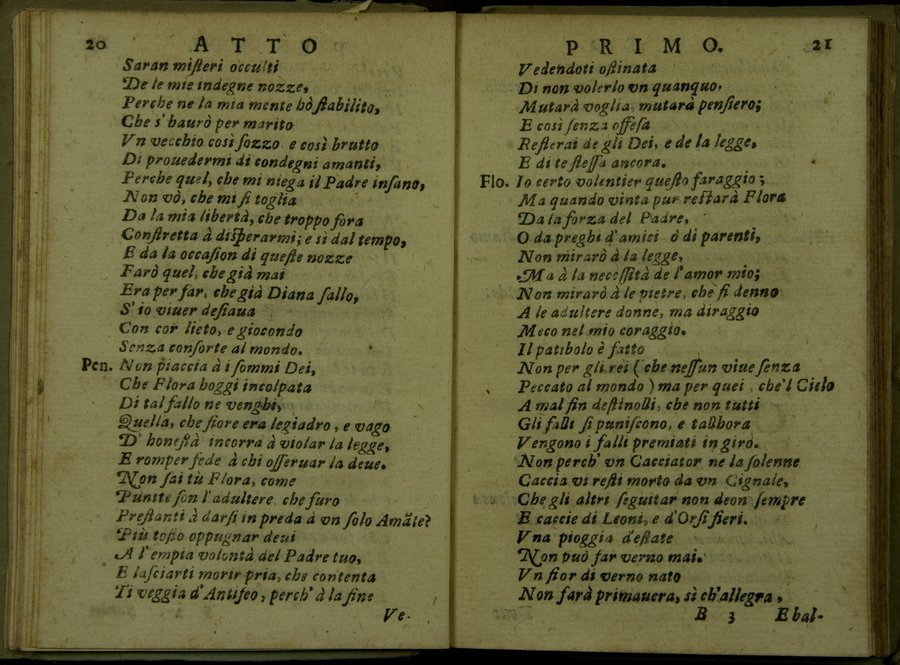 20 ATTO
Saran misteri occulti
De le mie indegne nozze,
Perche ne la mia mente hò stabilito,
Che s'haurò per marito
Vn vecchio così sozzo e così brutto
Di prouedermi di condegni amanti,
Perche quel, che mi niega il Padre insano,
Non vò, che mi si toglia
Da la mia libertà, che troppo fora
Constretta à disperarmi; e si dal tempo,
E da la occasion di queste nozze
Farò quel, che già mai
Era per far, che già Diana fallo,
S'io viuer desiaua
Con cor lieto, e giocondo
Senza consorte al mondo.
Pen. Non piaccia à i sommi Dei,
Che Flora hoggi incolpata
Di tal fallo ne venghi,
Quella, che fiore era legiadro, e vago
D'honestà incorra à violar la legge,
E romper fede à chi osseruar la deue.
Non sai tù Flora, come
Punite son l'adultere che furo
Prestanti à darsi in preda à vn solo Amāte?
Più tosto oppugnar deui
A l'empia volontà del Padre tuo,
E lasciarti morir pria, che contenta
Ti veggia d'Antifeo, perch'à la fine
Ve-
PRIMO. 21
Vedendoti ostinata
Di non volerlo vn quanquo,
Mutarà voglia, mutarà pensiero;
E così senza offesa
Resterai de gli Dei, e de la legge,
E di te stessa ancora.
Flo. Io certo volentier questo faraggio;
Ma quando vinta pur restarà Flora
Da la forza del Padre,
O da preghi d'amici ò di parenti,
Non mirarò à la legge,
Ma à la necessità de l'amor mio;
Non mirarò à le pietre, che si denno
A le adultere donne, ma diraggio
Meco nel mio coraggio.
Il patibolo è fatto
Non per gli rei (che nessun viue senza
Peccato al mondo) ma per quei, che'l Cielo
A mal fin destinolli, che non tutti
Gli falli si puniscono, e tallhora
Vengono i falli premiati in giro.
Non perch'vn Cacciator ne la solenne
Caccia vi resti morto da vn Cignale,
Che gli altri seguitar non deon sempre
E caccie di Leoni, e d'Orsi fieri.
Vna pioggia d'estate
Non può far verno mai.
Vn fior di verno nato
Non farà primauera, sì ch'allegra,
B 3 E bal-